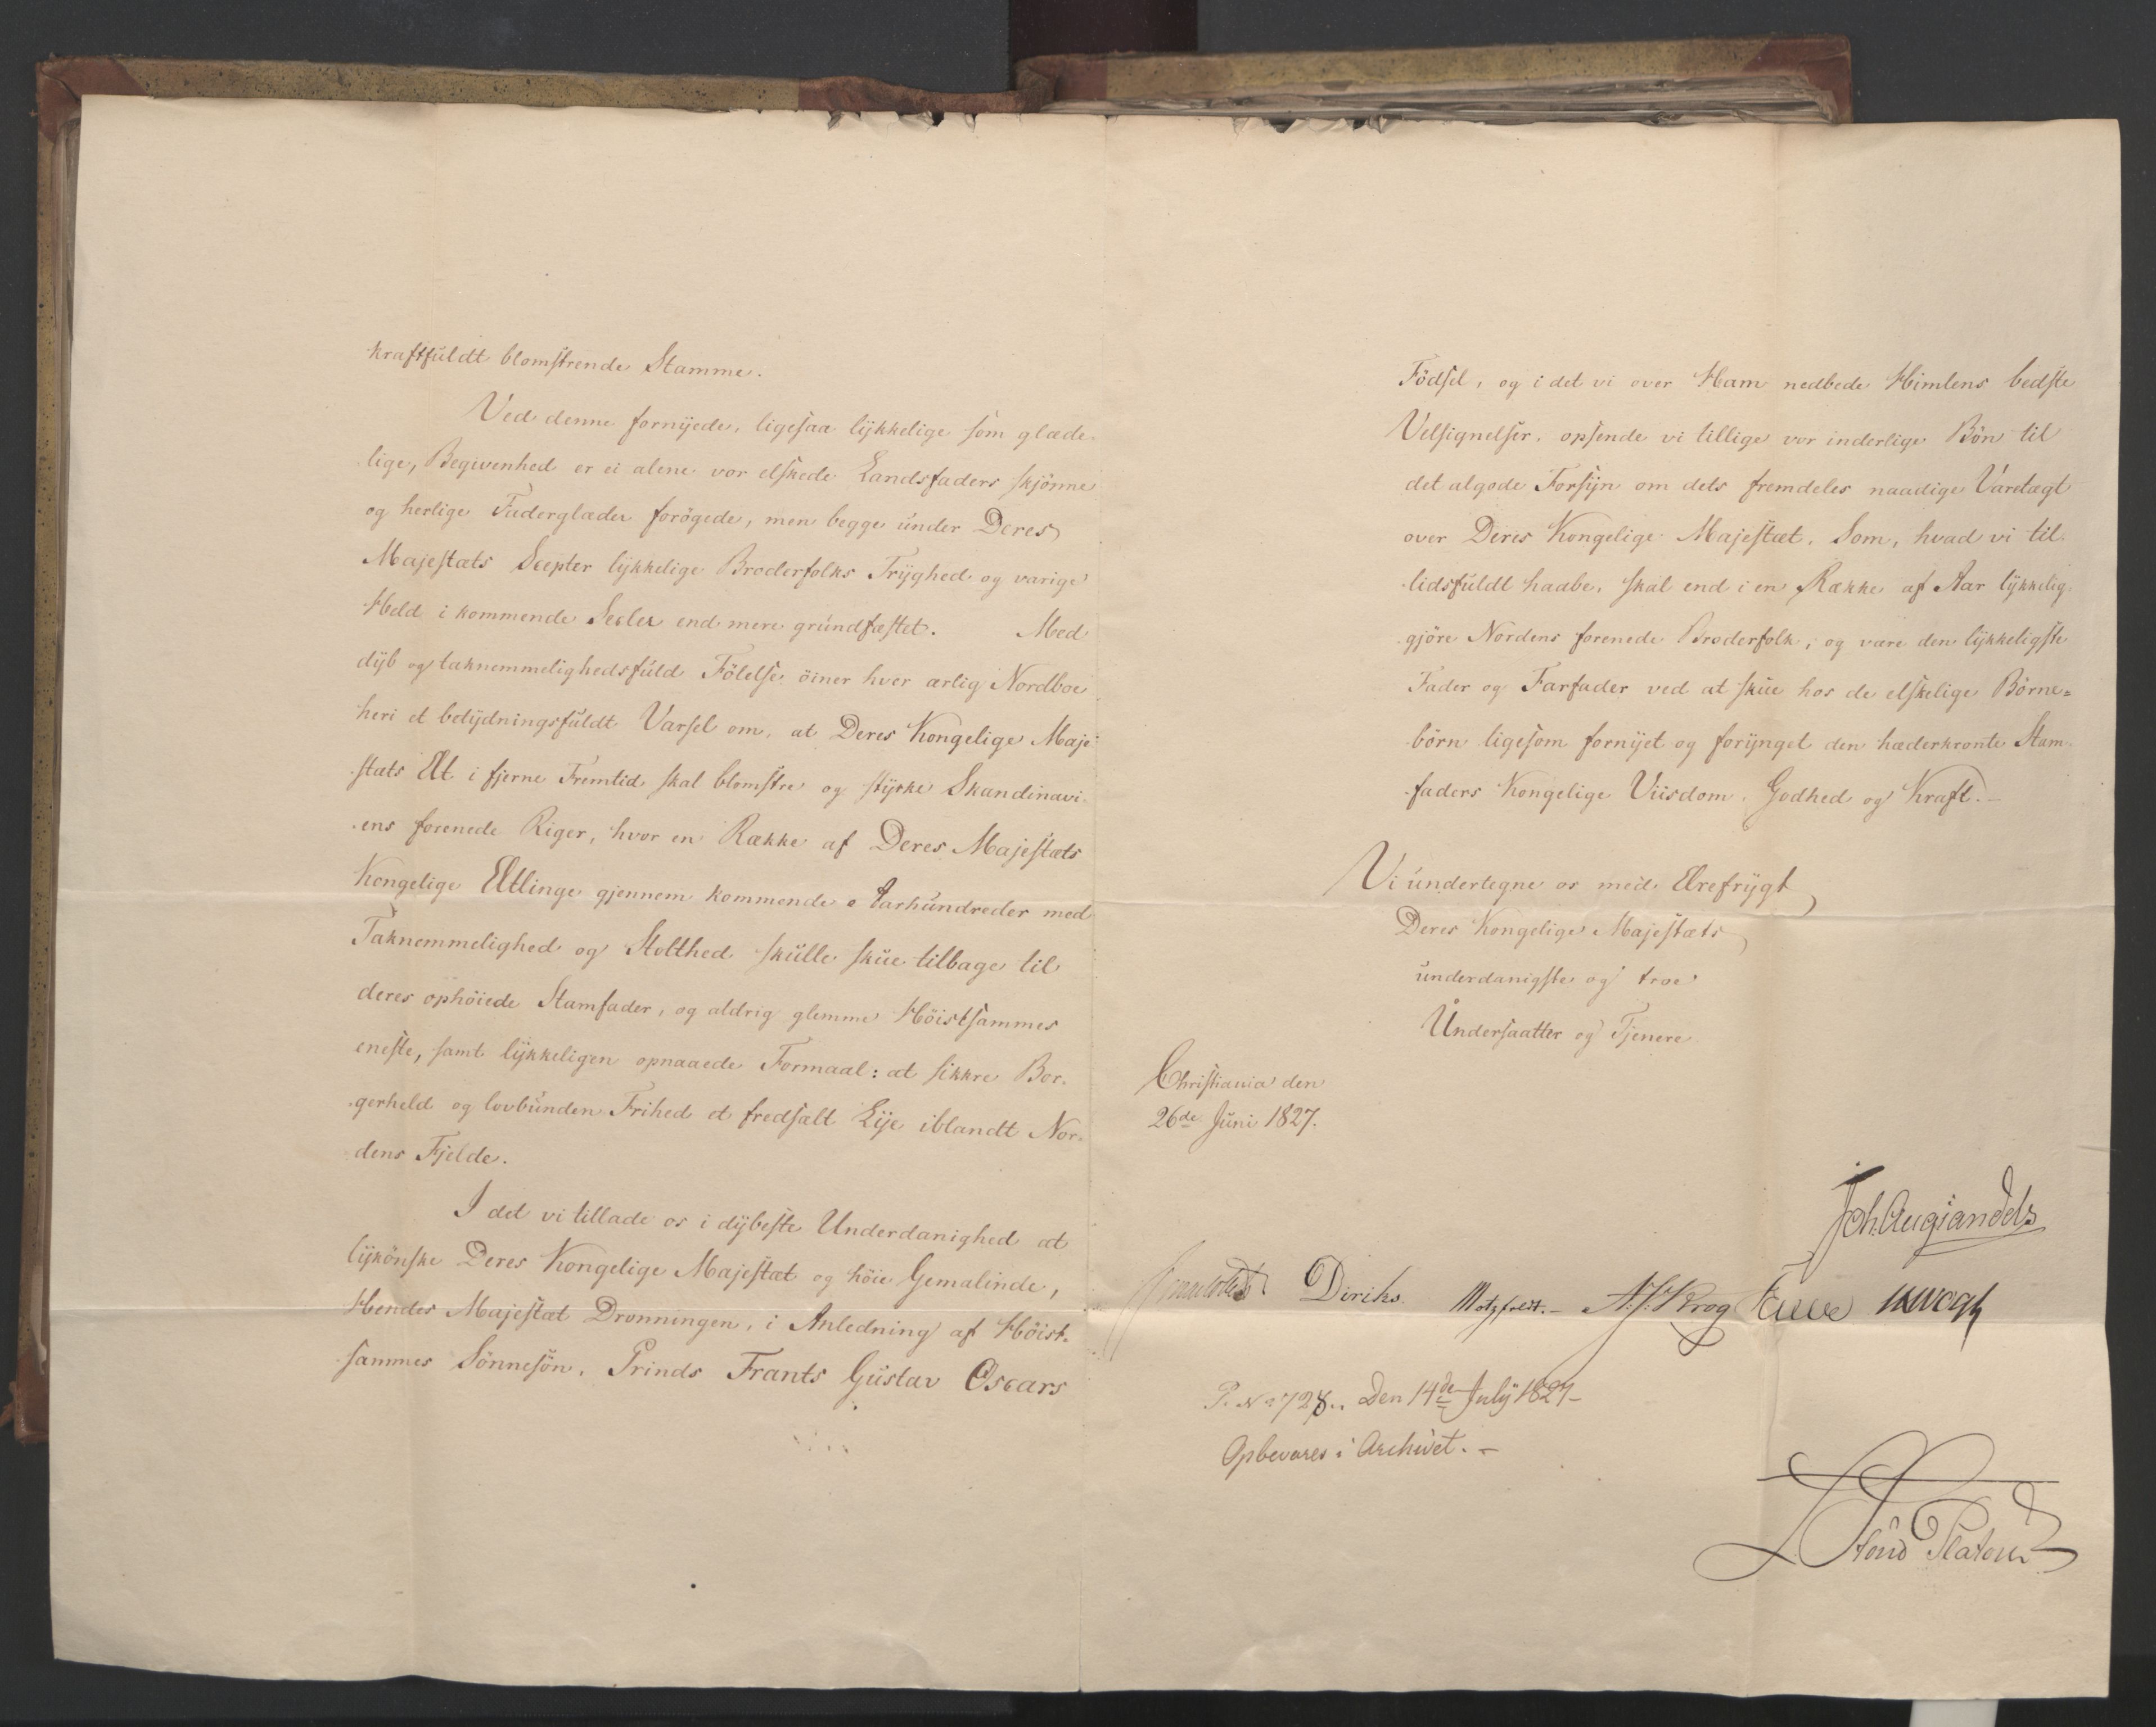 kraftfuldt blomstrende Stamme.
Ved denne fornyede, ligesaa lykkelige som glæde-
lige, Begivenhed er ei alene vor elskede Landsfaders skjönne
og herlige Faderglæder forögede, men begge under Deres
Majestæts Scepter lykkelige Broderfolks Tryghed og varige
Held i kommende Secler end mere grundfæstet. Med
dyb og taknemmelighedsfuld Fölelse öiner hver ærlig Nordboe
heri et betydningsfuldt Varsel om, at Deres Kongelige Maje-
stæts Æt i fjerne Fremtid skal blomstre og styrke Skandinavi-
ens forenede Riger, hvor en Række af Deres Majestæts
Kongelige Ætlinge gjennem kommende Aarhundreder med
Taknemmelighed og Stolthed skulle skue tilbage til
deres ophöiede Stamfader, og aldrig glemme Höistsammes
eneste, samt lykkeligen opnaaede Formaal: at sikkre Bor-
gerheld og lovbunden Frihed et fredsælt Eje iblandt Nor-
dens Fjelde.
I det vi tillade os i dybeste Underdanighed at
lykönske Deres Kongelige Majestæt og höie Gemalinde,
Hendes Majestæt Dronningen, i Anledning af Höist-
sammes Sönnesön, Prinds Frants Gustav Oscars
Födsel, og i det vi over Ham nedbede Himlens bedste
Velsignelser, opsende vi tillige vor inderlige Bön til
det algode Forsyn om dets fremdeles naadige Varetægt
over Deres Kongelige Majestæt, Som, hvad vi til-
lidsfuldt haabe, skal end i en Række af Aar lykkelig-
gjöre Nordens forenede Broderfolk, og være den lykkeligste
Fader og Farfader ved at skue hos de elskelige Börne=
börn ligesom fornyet og forynget den hæderkronte Stam-
faders Kongelige Viisdom, Godhed og Kraft.-
Vi undertegne os med Ærefrygt
Deres Kongelige Majestæts
underdanigste og troe
Undersaatter og Tjenere
Christiania den
26de Juni 1827.
Joh. Aug: Sandels
Diriks Motzfeldt.- A: S: Krog Fasting JHVogt
P. No 728.. Den 14de July 1827-
Opbevares i Archivet.-
Stoud Platou